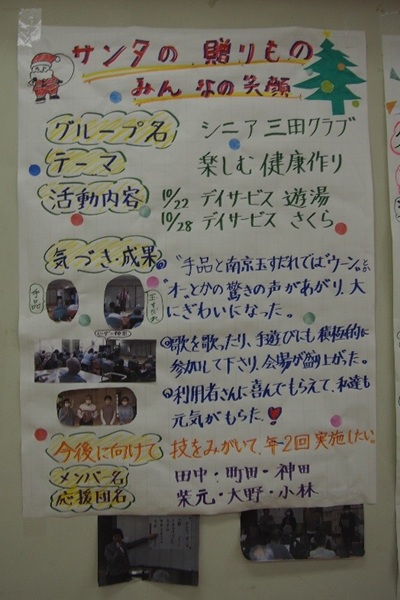 サンタの 贈りもの
みんなの笑顔
グループ名 シニア三田クラブ
テーマ 楽しむ健康作り
活動内容 10/22 デイサービス 遊湯
10/28 デイサービス さくら
気づき・成果
"手品と南京玉すだれでは"ウーン"とか
"オー"とかの驚きの声があがり、大
にぎわいになった。
歌を歌ったり、手遊びにも積極的に
参加して下さり、会場が盛り上がった。
利用者さんに喜んでもらえて、私達も
元気がもらた。
手品
玉すだれ
今後に向けて 技をみがいて、年2回実施したい。
メンバー名 田中・町田・神田
応援団名 栄元・大野・小林